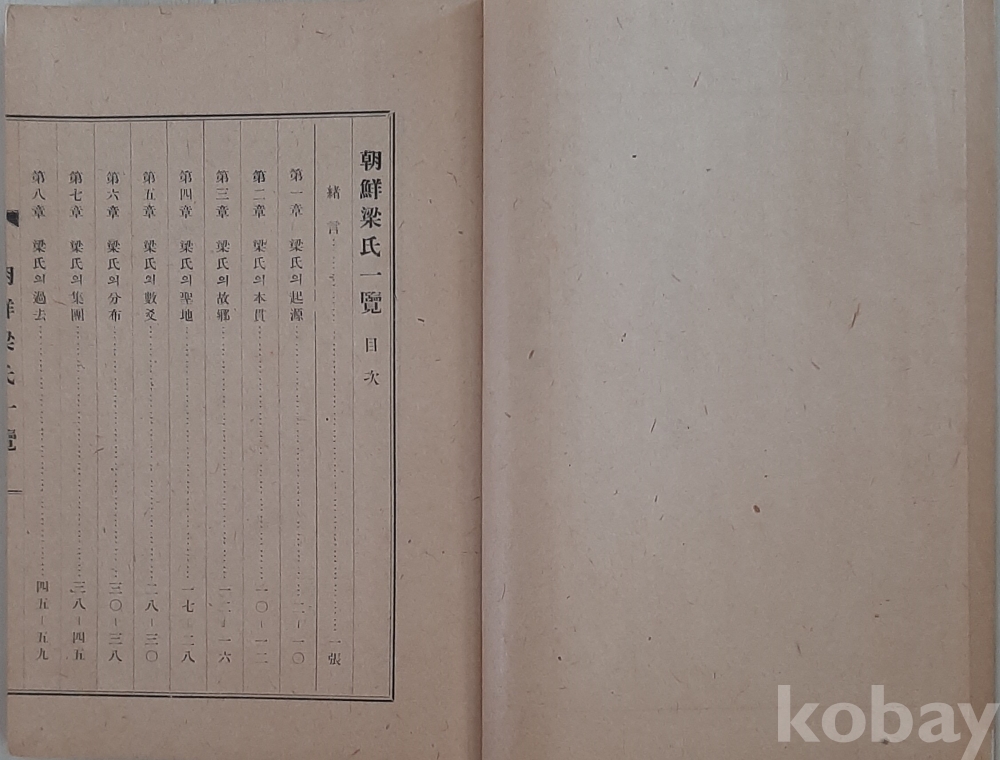 朝鮮梁氏一覽 目次
緖言……一張
第一章 梁氏의起源……二-一〇
第二章 梁氏의本貫……一〇-一二
第三章 梁氏의故鄕……一二-一六
第四章 梁氏의聖地……一七-二八
第五章 梁氏의數爻……二八-三〇
第六章 梁氏의分布……三〇-三八
第七章 梁氏의集團……三八-四五
第八章 梁氏의過去……四五-五九
朝鮮梁氏一覽
kobay